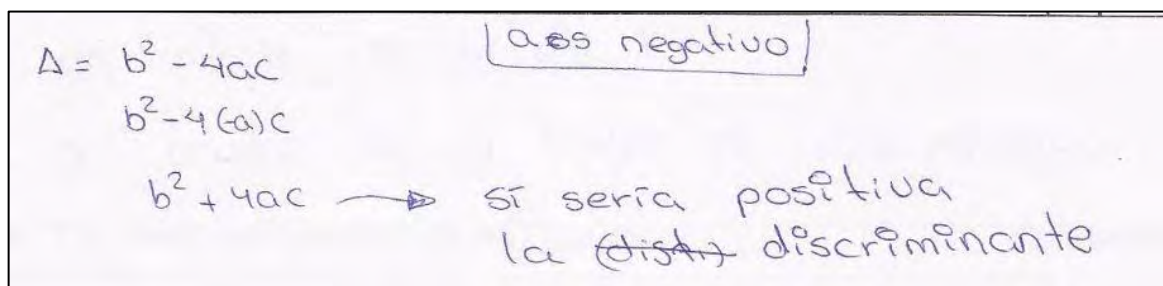 a es negativo
Δ = b² - 4ac
b² - 4(-a)c
b² + 4ac → sí sería positiva
la (dist.) discriminante